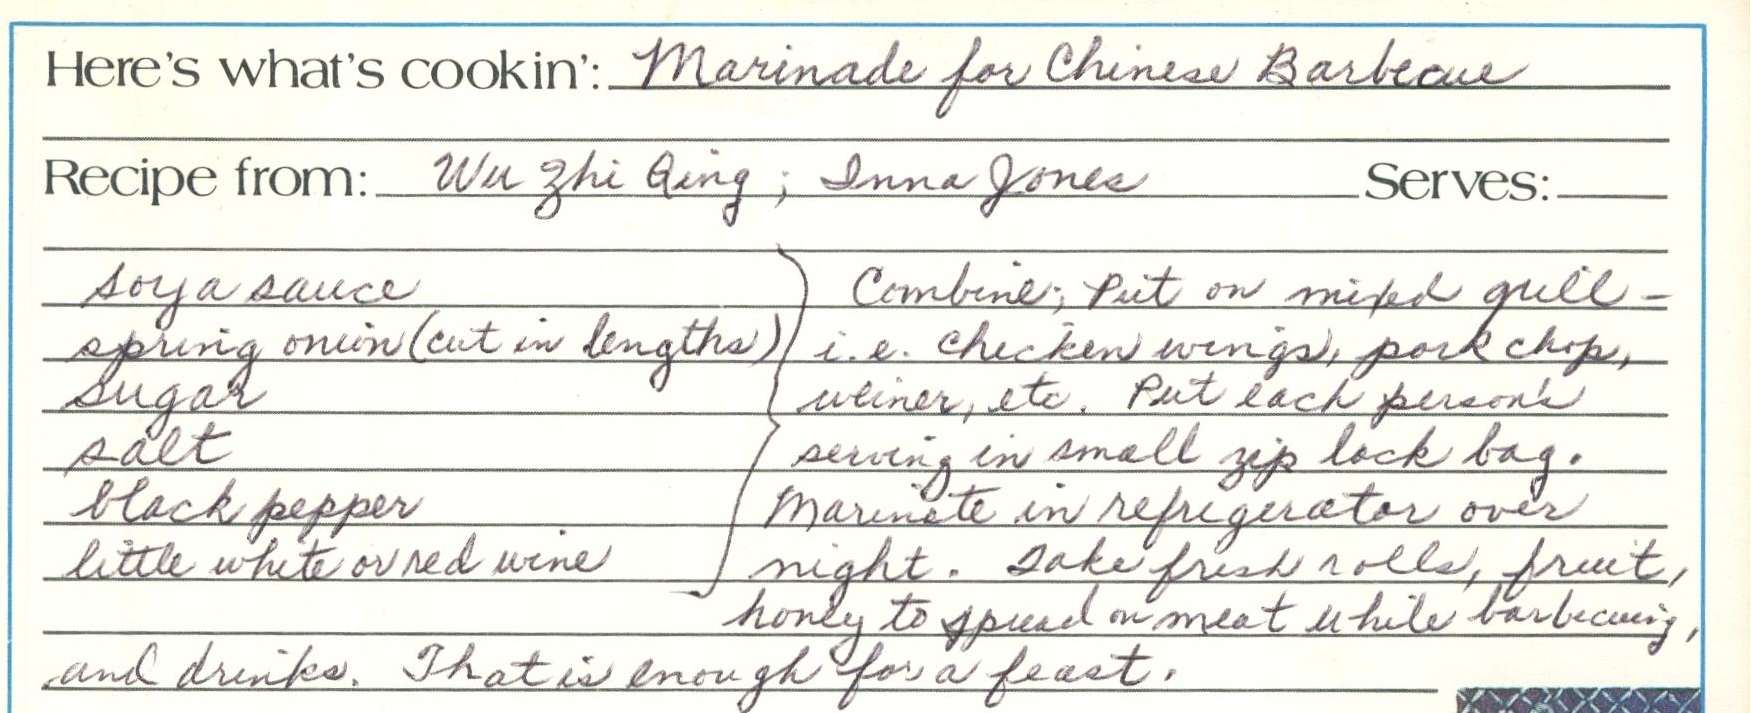 Here's what's cookin': Marinade for Chinese Barbecue
Recipe from: Wu Zhi Qing ; Inna Jones Serves:
soya sauce
spring onion (cut in lengths)
sugar
salt
black pepper
little white or red wine
Combine; Put on mixed grill –
i.e. chicken wings, pork chop,
weiner, etc. Put each person's
serving in small zip lock bag.
Marinate in refrigerator over
night. Take fresh rolls, fruit,
honey to spread on meat while barbecuing,
and drinks. That is enough for a feast.